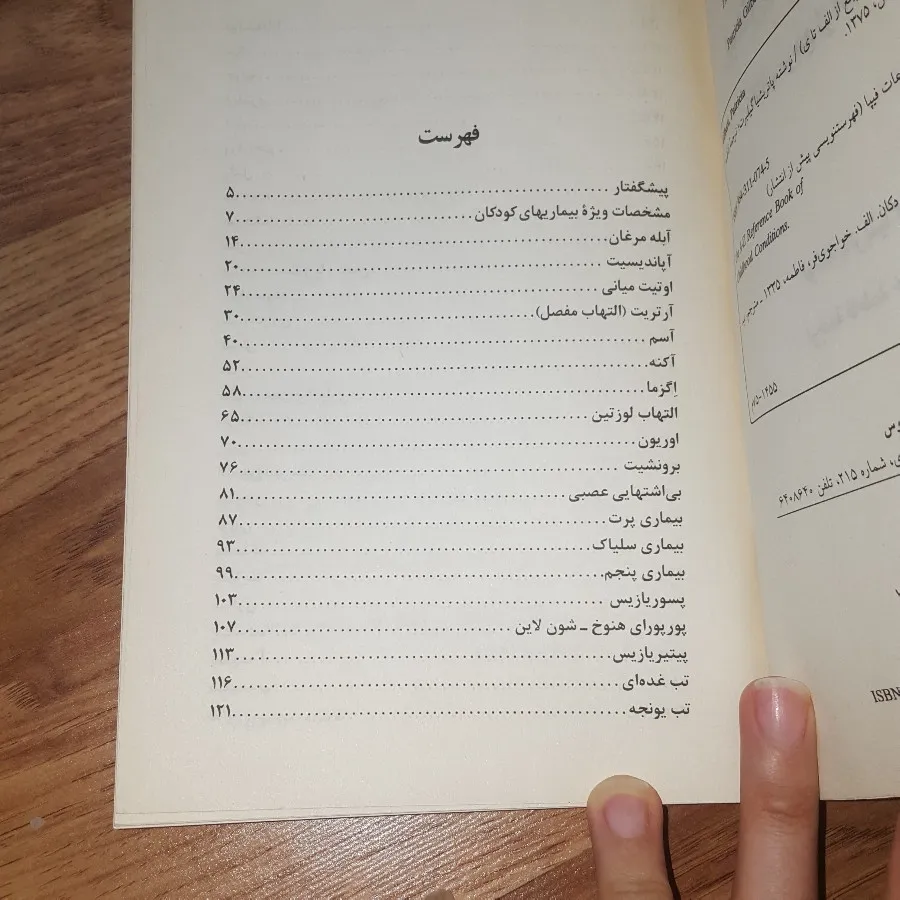 فهرست
پیشگفتار ........ ۵
مشخصات ویژهٔ بیماریهای کودکان ........ ۷
آبله مرغان ........ ۱۴
آپاندیسیت ........ ۲۰
اوتیت میانی ........ ۲۴
آرتریت (التهاب مفصل) ........ ۳۰
آسم ........ ۴۰
آکنه ........ ۵۲
اِگزما ........ ۵۸
التهاب لوزتین ........ ۶۵
اوریون ........ ۷۰
برونشیت ........ ۷۶
بی‌اشتهایی عصبی ........ ۸۱
بیماری پرت ........ ۸۷
بیماری سلیاک ........ ۹۳
بیماری پنجم ........ ۹۹
پسوریازیس ........ ۱۰۳
پورپورای هنوخ ـ شون لاین ........ ۱۰۷
پیتیریازیس ........ ۱۱۳
تب غده‌ای ........ ۱۱۶
تب یونجه ........ ۱۲۱
از الف تا ی) / نوشته پاتریشیا گیلبرت
۱۳۷۵.
فیپا (فهرستنویسی پیش از انتشار)
311-074-5
A-Z Reference Book of
Conditions.
الف. خواجوی‌فر، فاطمه، ۱۳۳۵ ـ
شماره ۲۱۵، تلفن ۶۴۰۸۶۴۰
ISBN